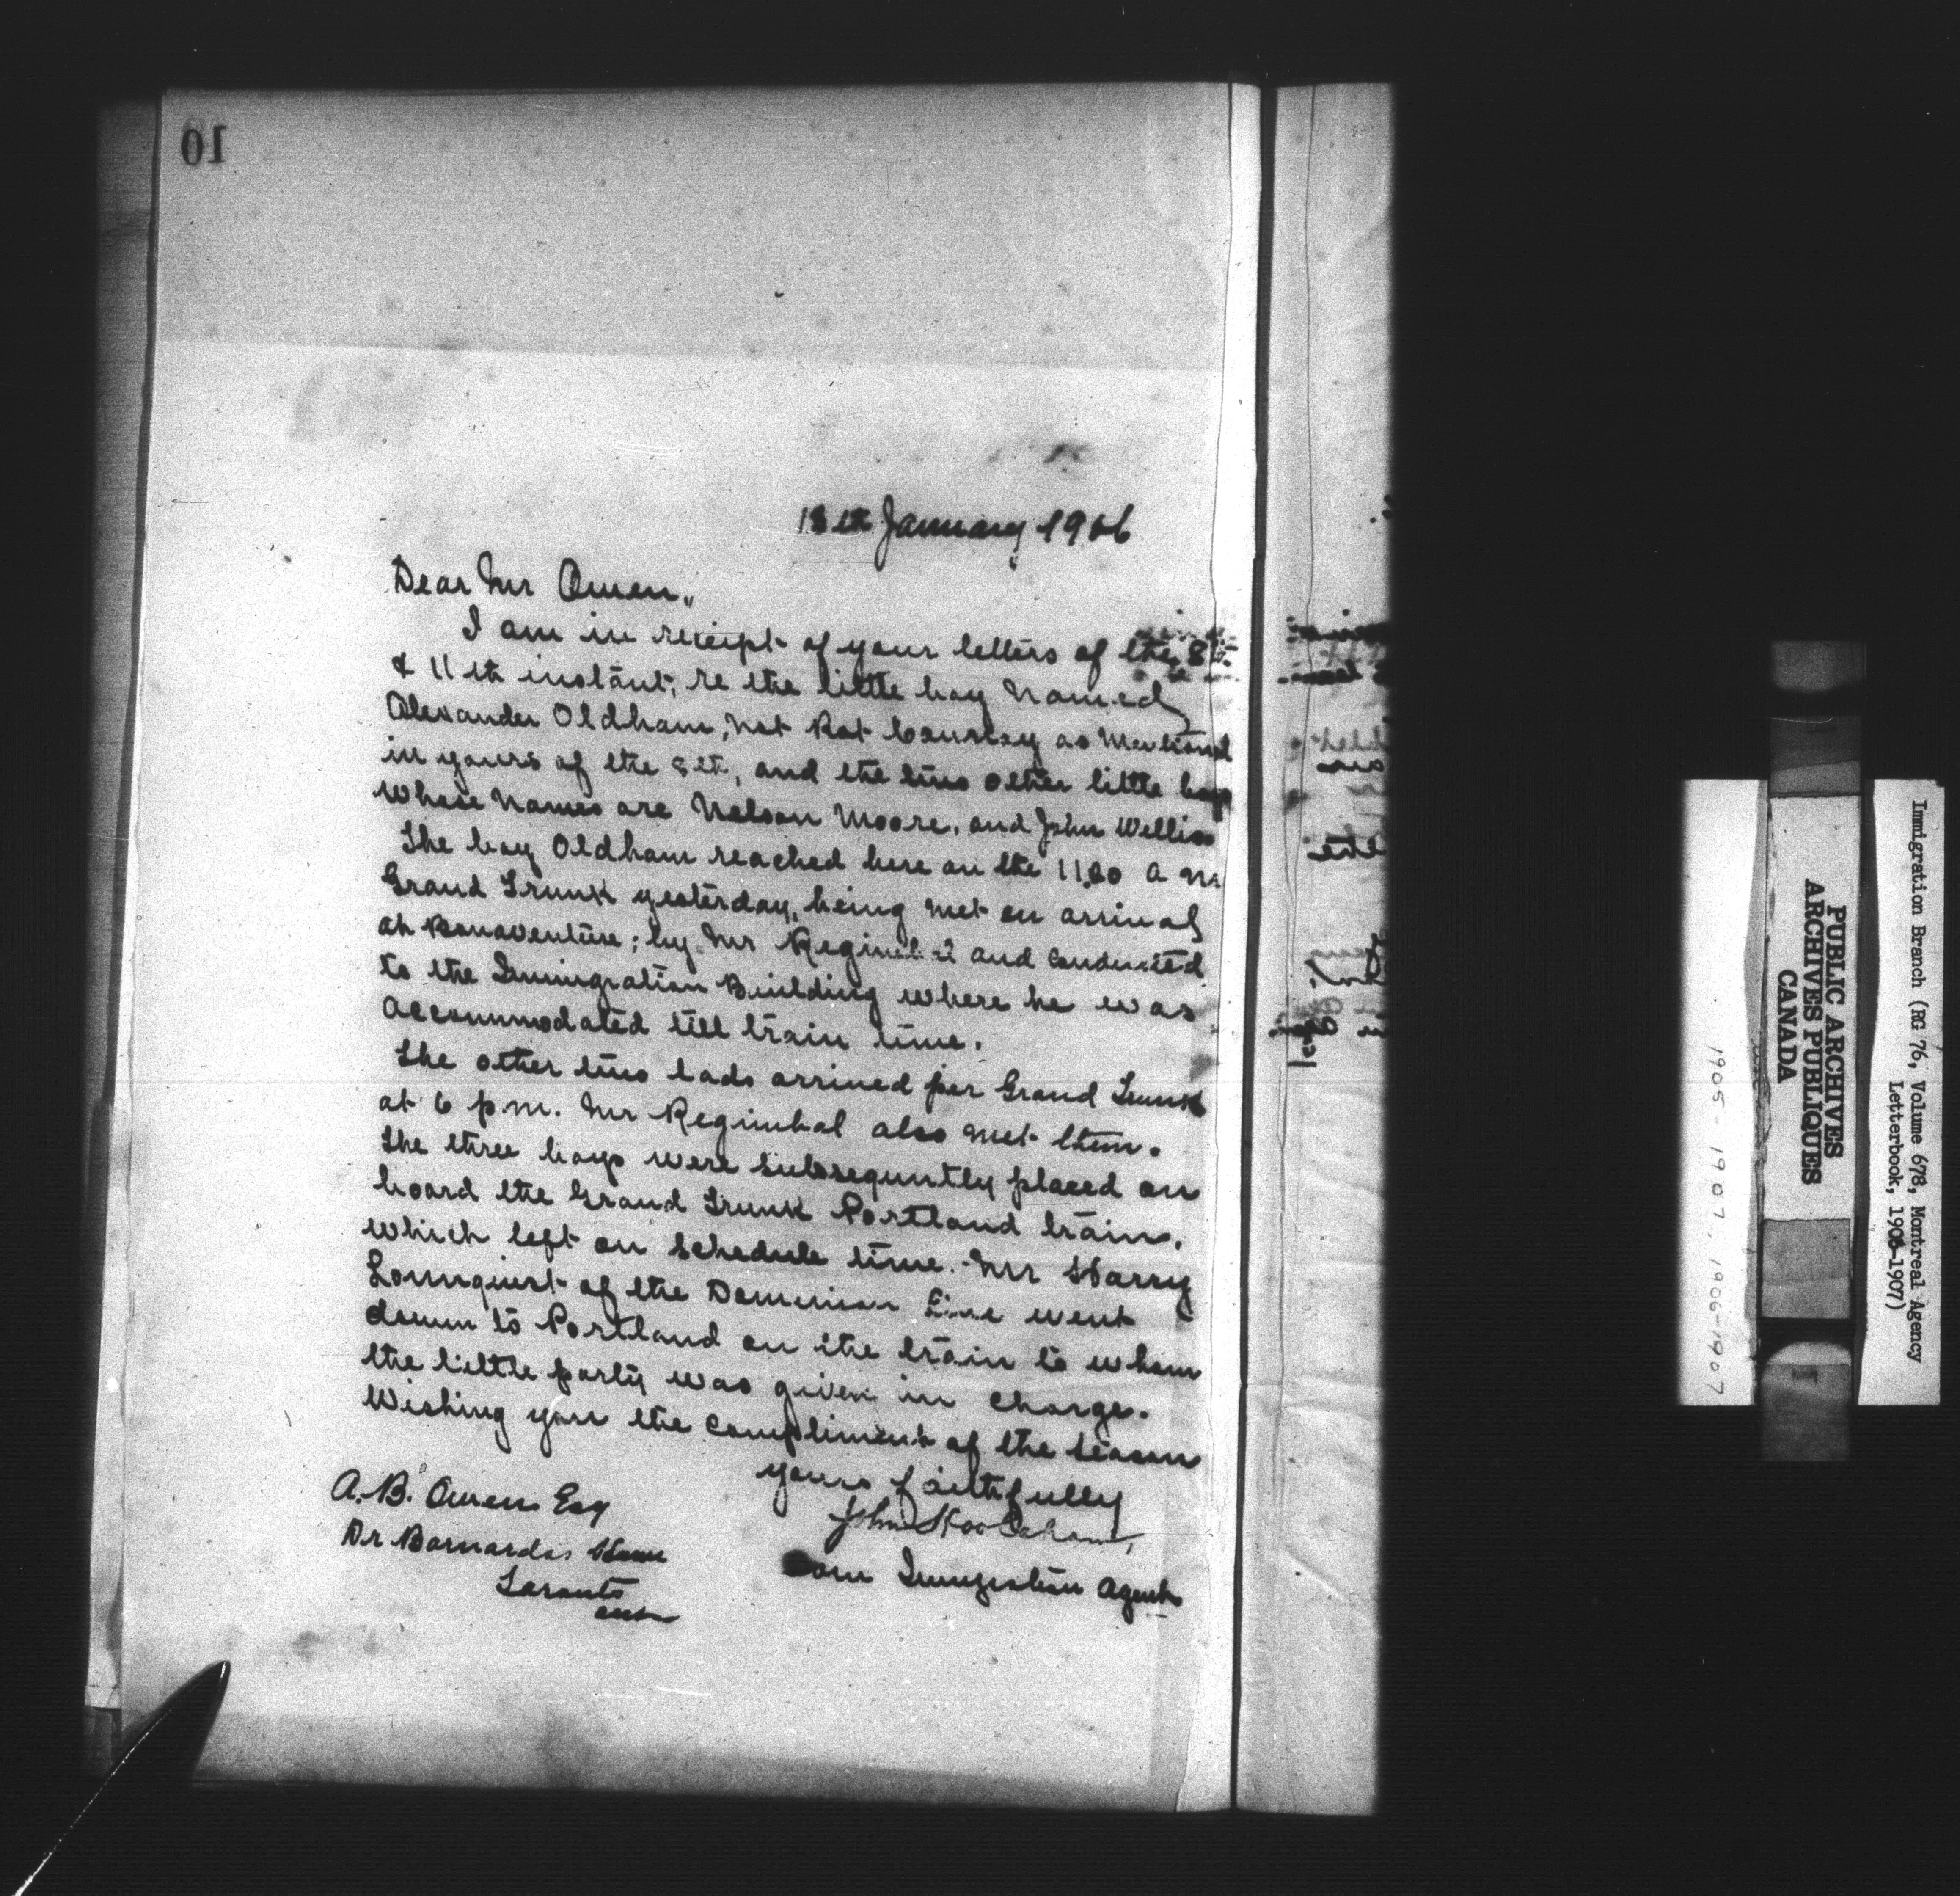 10
13th January 1906
Dear Mr Owen,
I am in receipt of your letters of the 8th
& 11th instant, re the little boy named
Alexander Oldham, not Rat Coursey as mentioned
in yours of the 8th, and the two other little boys
whose names are Nelson Moore, and John Wellis
The boy Oldham reached here on the 11.20 a m
Grand Trunk yesterday, being met on arrival
at Bonaventure; by Mr Regimbal and conducted
to the Immigration Building where he was
accommodated till train time.
The other two lads arrived per Grand Trunk
at 6 p.m. Mr Regimbal also met them.
The three boys were subsequntly placed on
board the Grand Trunk Portland train,
which left on schedule time. Mr Harry
of the Dominion Line went
down to Portland on the train to whom
the little party was given in charge.
Wishing you the compliments of the season
yours faithfully
John Hoolahan,
Dom Immigration Agent
A.B. Owen Esq
Dr Barnardos Home
Toronto
Ont
Immigration Branch (RG 76, Volume 678, Montreal Agency
Letterbook, 1905-1907)
PUBLIC ARCHIVES
ARCHIVES PUBLIQUES
CANADA
1905-1907, 1906-1907